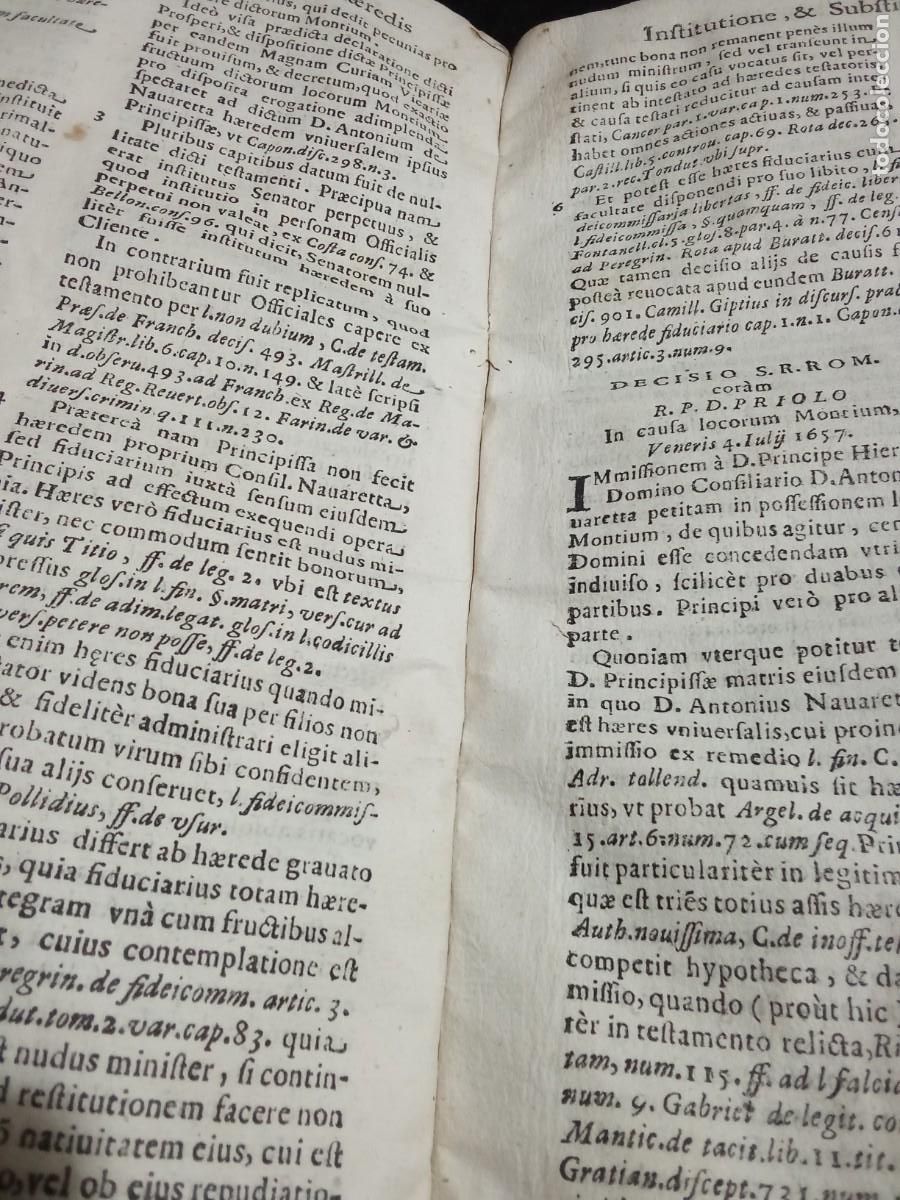 facultate
nedicta
instituit
rimal-
natu-
iquo
em
An-
er-
hæredis
us, qui dedit pecunias pro
re dictorum Montium.
Ideò visa prædicta declaratione dicti
Prosperi, & dispositione dictæ Principissæ
per eandem Magnam Curiam Vicariæ
fuit prouisum, & decretum, quod exactio
fructuum dictorum locorum Montium
pro disposita erogatione adimplenda
spectaret ad dictum D. Antonium de
Nauaretta hæredem vniuersalem ipsius
Principissæ, vt Capon. disc. 298. n. 3.
3 Pluribus capitibus datum fuit de nul-
litate dicti testamenti. Præcipua nam
erat institutus Senator perpetuus, &
quod institutio in personam Officialis
perpetui non valeat, ex Costa cons. 74. &
Bellon. cons. 96. qui dicit, Senatorem nul-
litèr fuisse institutum hæredem à suo
Cliente.
In contrarium fuit replicatum, quod
non prohibeantur Officiales capere ex
testamento per l. non dubium, C. de testam.
Præs. de Franch. decis. 493. Mastrill. de
Magistr. lib. 6. cap. 10. n. 149. & latè scripsi
in d. obseru. 493. ad Franch. ex Reg. de Ma-
rin. ad Reg. Reuert. obs. 12. Farin. de var. &
diuers. crimin q. 111. n. 230.
Prætereà nam Principissa non fecit
hæredem proprium Consil. Nauaretta,
sed fiduciarium iuxtà sensum eiusdem
Principis ad effectum exequendi opera
ia. Hæres verò fiduciarius est nudus mi-
ister, nec commodum sentit bonorum,
quis Titio, ff. de leg. 2. vbi est textus
pressus glos. in l. fin. §. matri, vers. cur ad
rem, ff. de adim. legat. glos. in l. codicillis
vers. petere non posse, ff. de leg. 2.
enim hęres fiduciarius quando mi-
ator videns bona sua per filios non
& fidelitèr administrari eligit ali-
robatum virum sibi confidentem,
sua alijs conseruet, l. fideicommis-
Pollidius, ff. de vsur.
arius differt ab hærede grauato
, quia fiduciarius totam hære-
tegram vnà cum fructibus al-
t, cuius contemplatione est
regrin. de fideicomm. artic. 3.
dut. tom. 2. var. cap. 83. quia
t nudus minister, si contin-
d restitutionem facere non
natiuitatem eius, cui est
o, vel ob eius repudiatio-
Institutione, & Substi
nem, tunc bona non remanent penès illum
nudum ministrum, sed vel transeunt in
alium, si quis eo casu vocatus sit, vel per-
tinent ab intestato ad hæredes testatoris
& causa testati reducitur ad causam inte
stati, Cancer par. 1. var. cap. 1. num. 253.
habet omnes actiones actiuas, & passiuas
Castill. lib. 5. controu. cap. 69. Rota dec. 201.
par. 2. rec. Tondut. vbi supr.
6 Et potest esse hæres fiduciarius cum
facultate disponendi pro suo libito,
deicommissaria libertas, ff. de fideic. libert
l. fideicommissa, §. quamquam, ff. de leg.
Fontanell. cl. 5. glos. 8. par. 4. à n. 77. Cens
ad Peregrin. Rota apud Buratt. decis. 6
Quæ tamen decisio alijs de causis f
posteà reuocata apud eundem Buratt.
cis. 901. Camill. Giptius in discurs. prac
pro hærede fiduciario cap. 1. n. 1. Capon.
295. artic. 3. num. 9.
DECISIO S. R. ROM.
coràm
R. P. D. PRIOLO
In causa locorum Montium,
Veneris 4. Iulij 1657.
IMmissionem à D. Principe Hier
Domino Consiliario D. Anton
uaretta petitam in possessionem l
Montium, de quibus agitur, cen
Domini esse concedendam vtri
indiuiso, scilicèt pro duabus
partibus. Principi verò pro al
parte.
Quoniam vterque potitur te
D. Principissæ matris eiusdem
in quo D. Antonius Nauaret
est hæres vniuersalis, cui proin
immissio ex remedio l. fin. C.
Adr. tollend. quamuis sit hæ
rius, vt probat Argel. de acqui
15. art. 6. num. 72. cum seq. Prin
fuit particularitèr in legitim
quæ est triēs totius assis hære
Auth. nouissima, C. de inoff. te
competit hypotheca, & da
missio, quando ( proùt hic )
tèr in testamento relicta, Ri
tam, num. 115. ff. ad l falcid
num. 9. Gabriel de legit. co
Mantic. de tacit. lib. 11. tit.
Gratian. discept. 721. num
todocoleccion